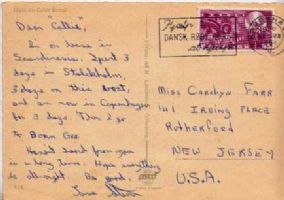 Dear "Callie",
I'm on leave in
Scandinavia. Spent 3
days in Stockholm,
3 days on this boat,
and am now in Copenhagen
for 3 days. Then I go
to Bonn Ger.
Haven't heard from you
in a long time. Hope everything
is alright. Be good,
Love
DANSK
MISS CAROLYN FARR
141 IRVING PLACE
RUTHERFORD
NEW JERSEY
U.S.A.